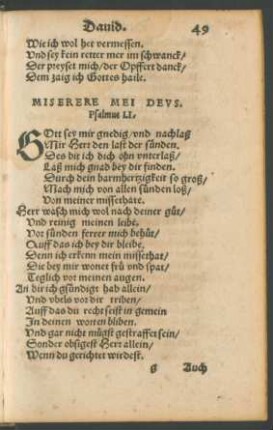 Dauid. 49
Wie ich wol het vermessen.
Vnd sey kein retter mer im schwanck/
Der preyset mich/ der Opffert danck/
Dem zaig ich Gottes haile.
MISERERE MEI DEVS.
Psalmus LI.
GOtt sey mir gnedig/ vnd nachlaß
Mir Herr den last der sünden.
Des bit ich dich ohn vnterlaß/
Laß mich gnad bey dir finden.
Durch dein barmhertzigkeit so groß/
Mach mich von allen sünden loß/
Von meiner missethate.
Herr wasch mich wol nach deiner güt/
Vnd reinig meinen leibe.
Vor sünden ferrer mich behüt/
Auff das ich bey dir bleibe.
Denn ich erkenn mein missethat/
Die bey mir wonet frü vnd spat/
Teglich vor meinen augen.
An dir ich gsündigt hab allein/
Vnd vbels vor dir triben/
Auff das du recht seist in gemein
In deinen worten bliben.
Vnd gar nicht mügst gestraffet sein/
Sonder obsigest Herr allein/
Wenn du gerichtet wirdest.
g Auch